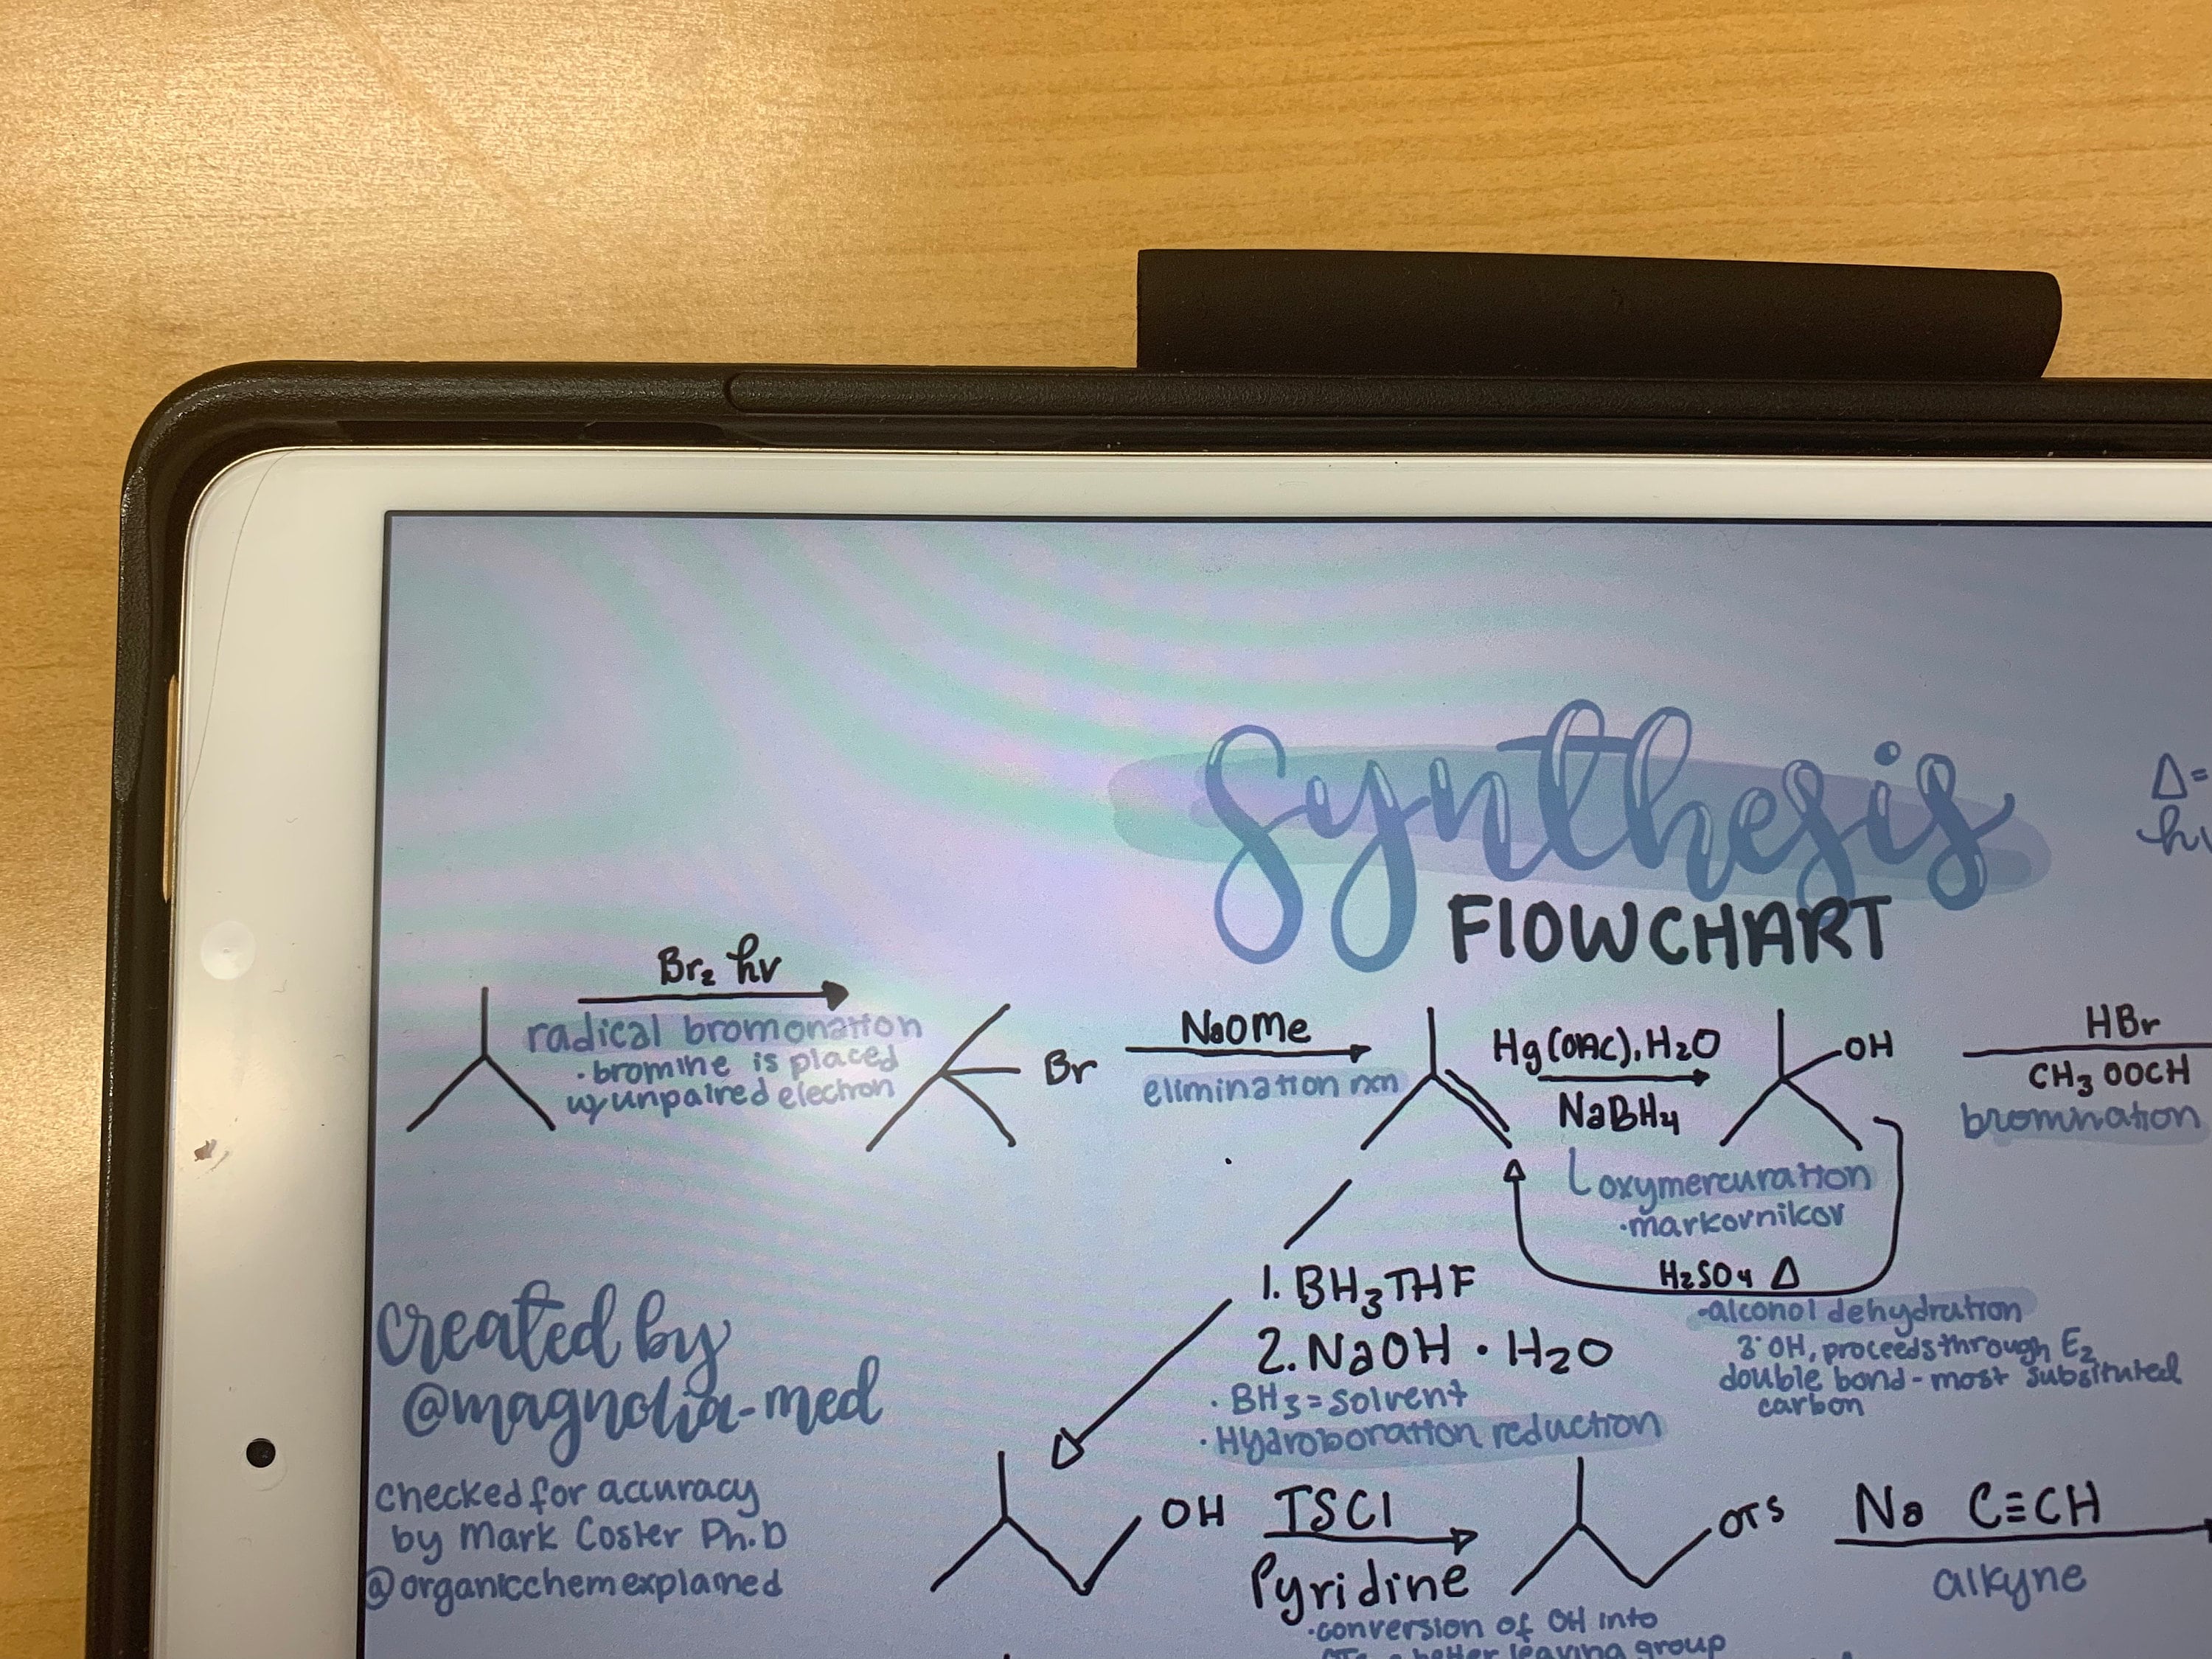 Synthesis
FLOWCHART
Δ=
hv
Br₂ hv
radical bromonation
·bromine is placed
w/ unpaired electron
Br
NaOMe
elimination rxn
Hg(OAc), H₂O
NaBH₄
oxymercuration
·markovnikov
OH
HBr
CH₃OOCH
bromination
H₂SO₄ Δ
-alconol dehydration
3° OH, proceeds through E₂
double bond - most subsituted
carbon
1. BH₃THF
2. NaOH · H₂O
· BH₃ = solvent
· Hydroboration reduction
created by
@magnolia-med
checked for accuracy
by Mark Coster Ph.D
@organicchemexplained
OH
TSCl
Pyridine
·conversion of OH into
OTs a better leaving group
OTS
Na C≡CH
alkyne